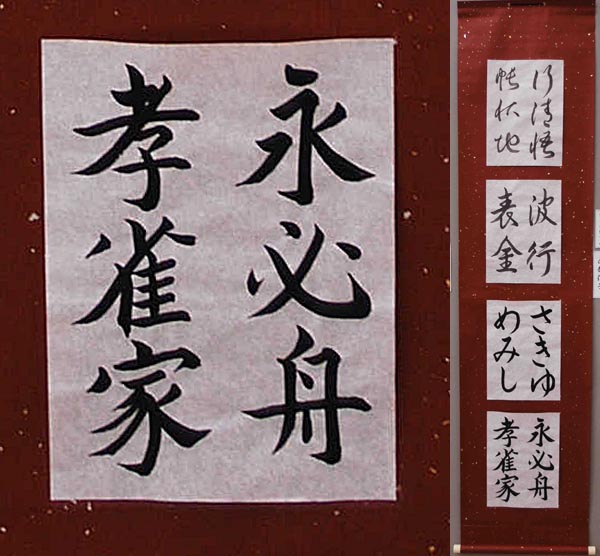 永必舟
孝雀家
行清悟
帳状地
波行
表金
さきゆ
めみし
永必舟
孝雀家